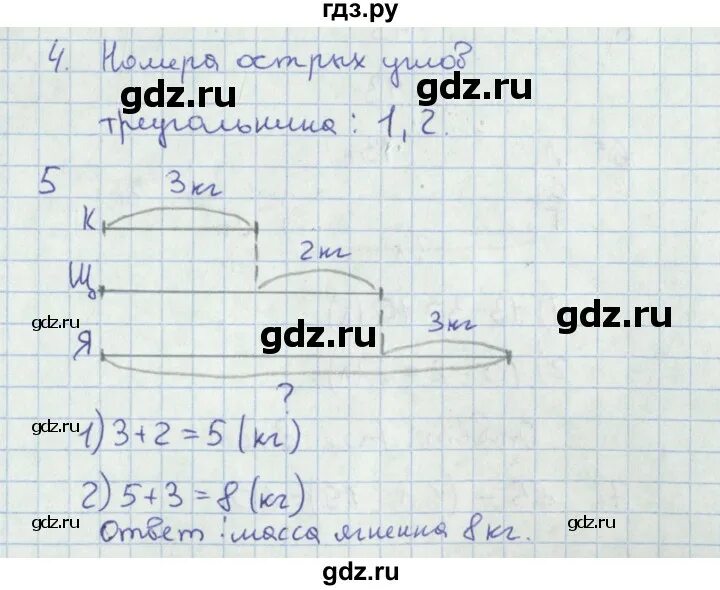 гдз.ру
4. Номера острых углов
gdz.ru
gdz.ru
треугольника: 1, 2.
5
3 кг
К
2 кг
Щ
gdz.ru
gdz.ru
gdz.ru
3 кг
Я
?
gdz.ru
gdz.ru
1) 3+2=5 (кг)
2) 5+3=8 (кг)
gdz.ru
gdz.ru
Ответ: масса ягненка 8 кг.
gdz.ru